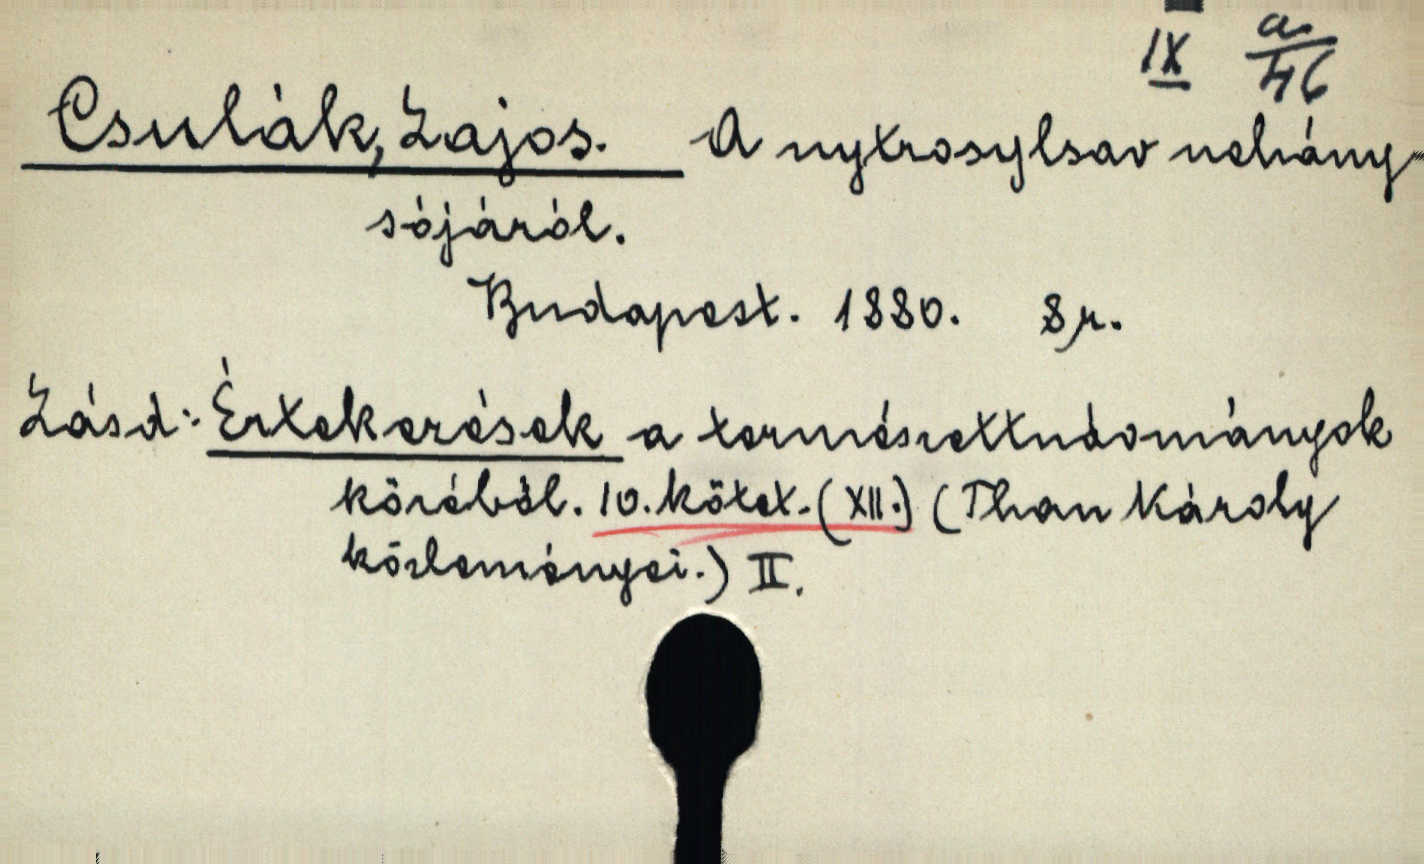 IX a/46
Csulák, Lajos. A nytrosylsav nehány
sójáról.
Budapest. 1880. 8r.
Lásd: Értekezések a természettudományok
köréből. 10. kötet. (XII.) (Than Károly
közleményei.) II.